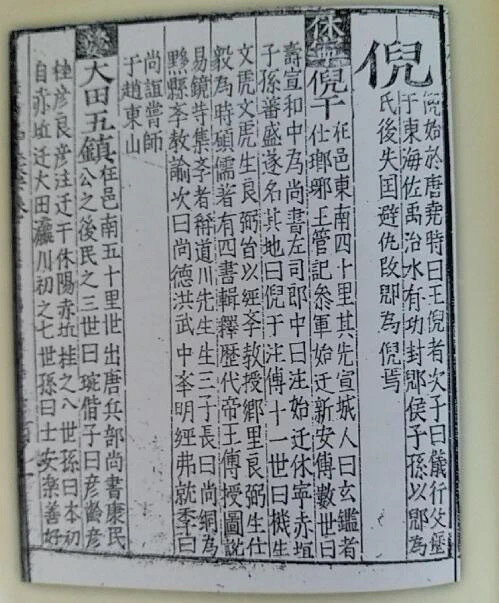 倪
倪始於唐堯時曰王倪者次子曰儀行父
于東海佐禹治水有功封郳侯子孫以郳為
氏後失囯避仇改郳為倪焉
休寧
倪干
在邑東南四十里其先宣城人曰玄鑑者
仕瑯琊王管記叅軍始迁新安傳數世曰
壽宣和中為尚書左司郎中曰注始迁休寧赤坵
子孫蕃盛遂名其地曰倪干注傳十一世曰機生
文虎文虎生良弼皆以經斈教授鄉里良弼生仕
毅為時碩儒著有四書輯釋歷代帝王傳授圖說
易鏡寺集斈者稱道川先生生三子長曰尚絅為
黟縣斈教諭次曰尚德洪武中峯明經弗就季曰
尚誼嘗師
于趙東山
大田五鎮
在邑南五十里世出唐兵部尚書康民
公之後民之三世曰琁偕子曰彦齡彦
桂彦良彦汪迁干休陽赤坵桂之八世孫曰本初
自赤坵迁大田廬川初之七世孫曰士安楽善好